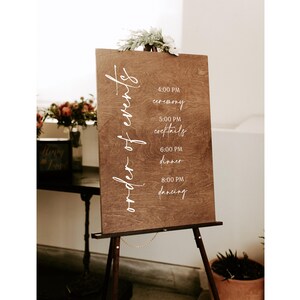 order of events
4:00 PM
ceremony
5:00 PM
cocktails
6:00 PM
dinner
8:00 PM
dancing